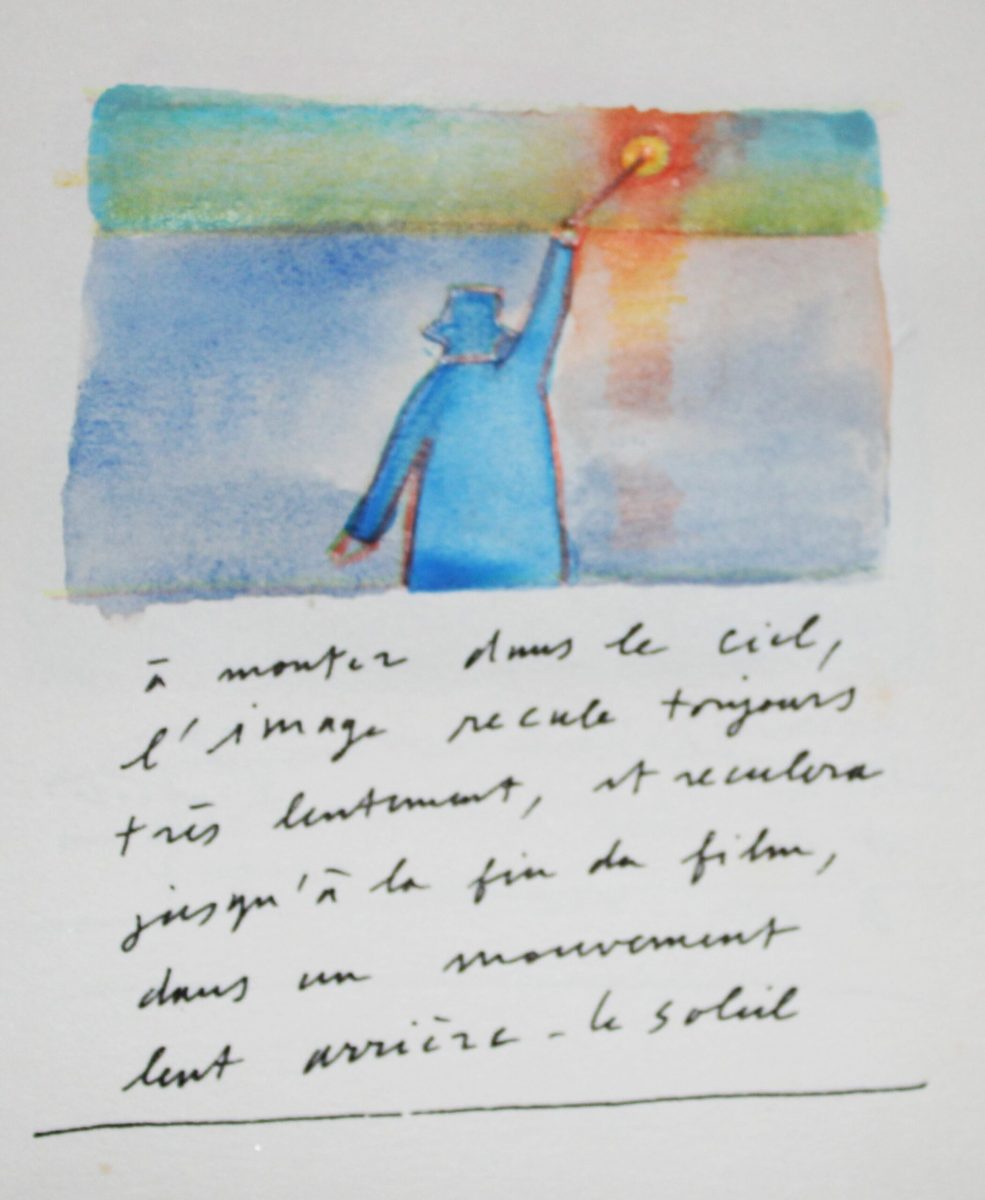 à monter dans le ciel,
l'image recule toujours
très lentement, et reculera
jusqu'à la fin du film,
dans un mouvement
lent arrière - le soleil